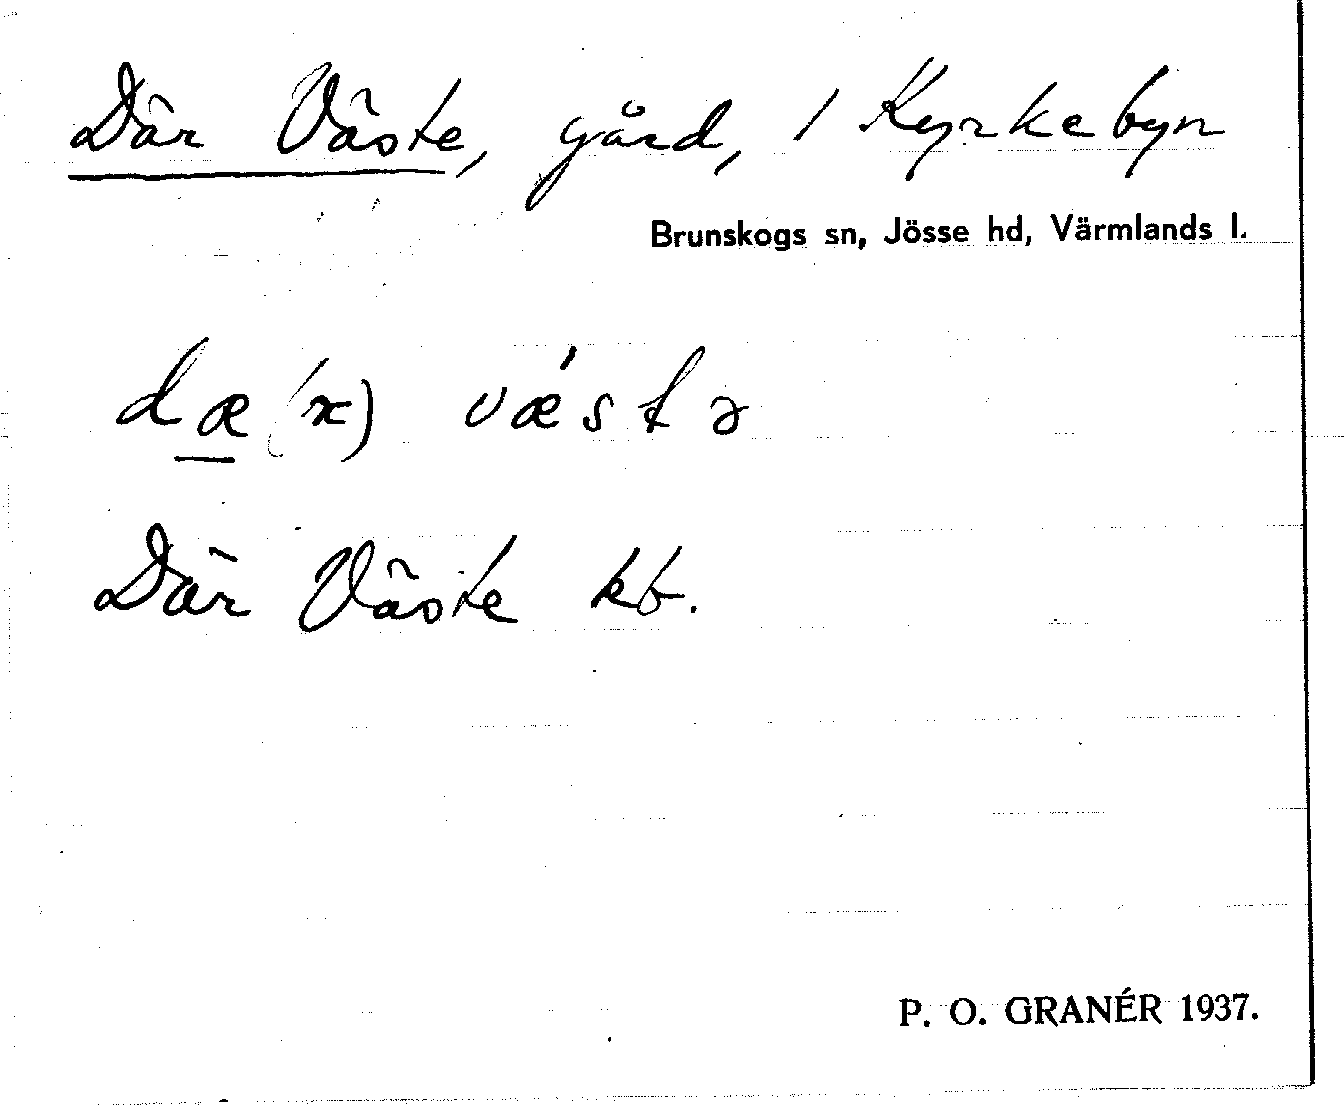 Där Väste, gård, i Kyrkebyn
Brunskogs sn, Jösse hd, Värmlands l.
dæ̲(r) vǽstə
Där Väste kb.
P. O. GRANÉR 1937.